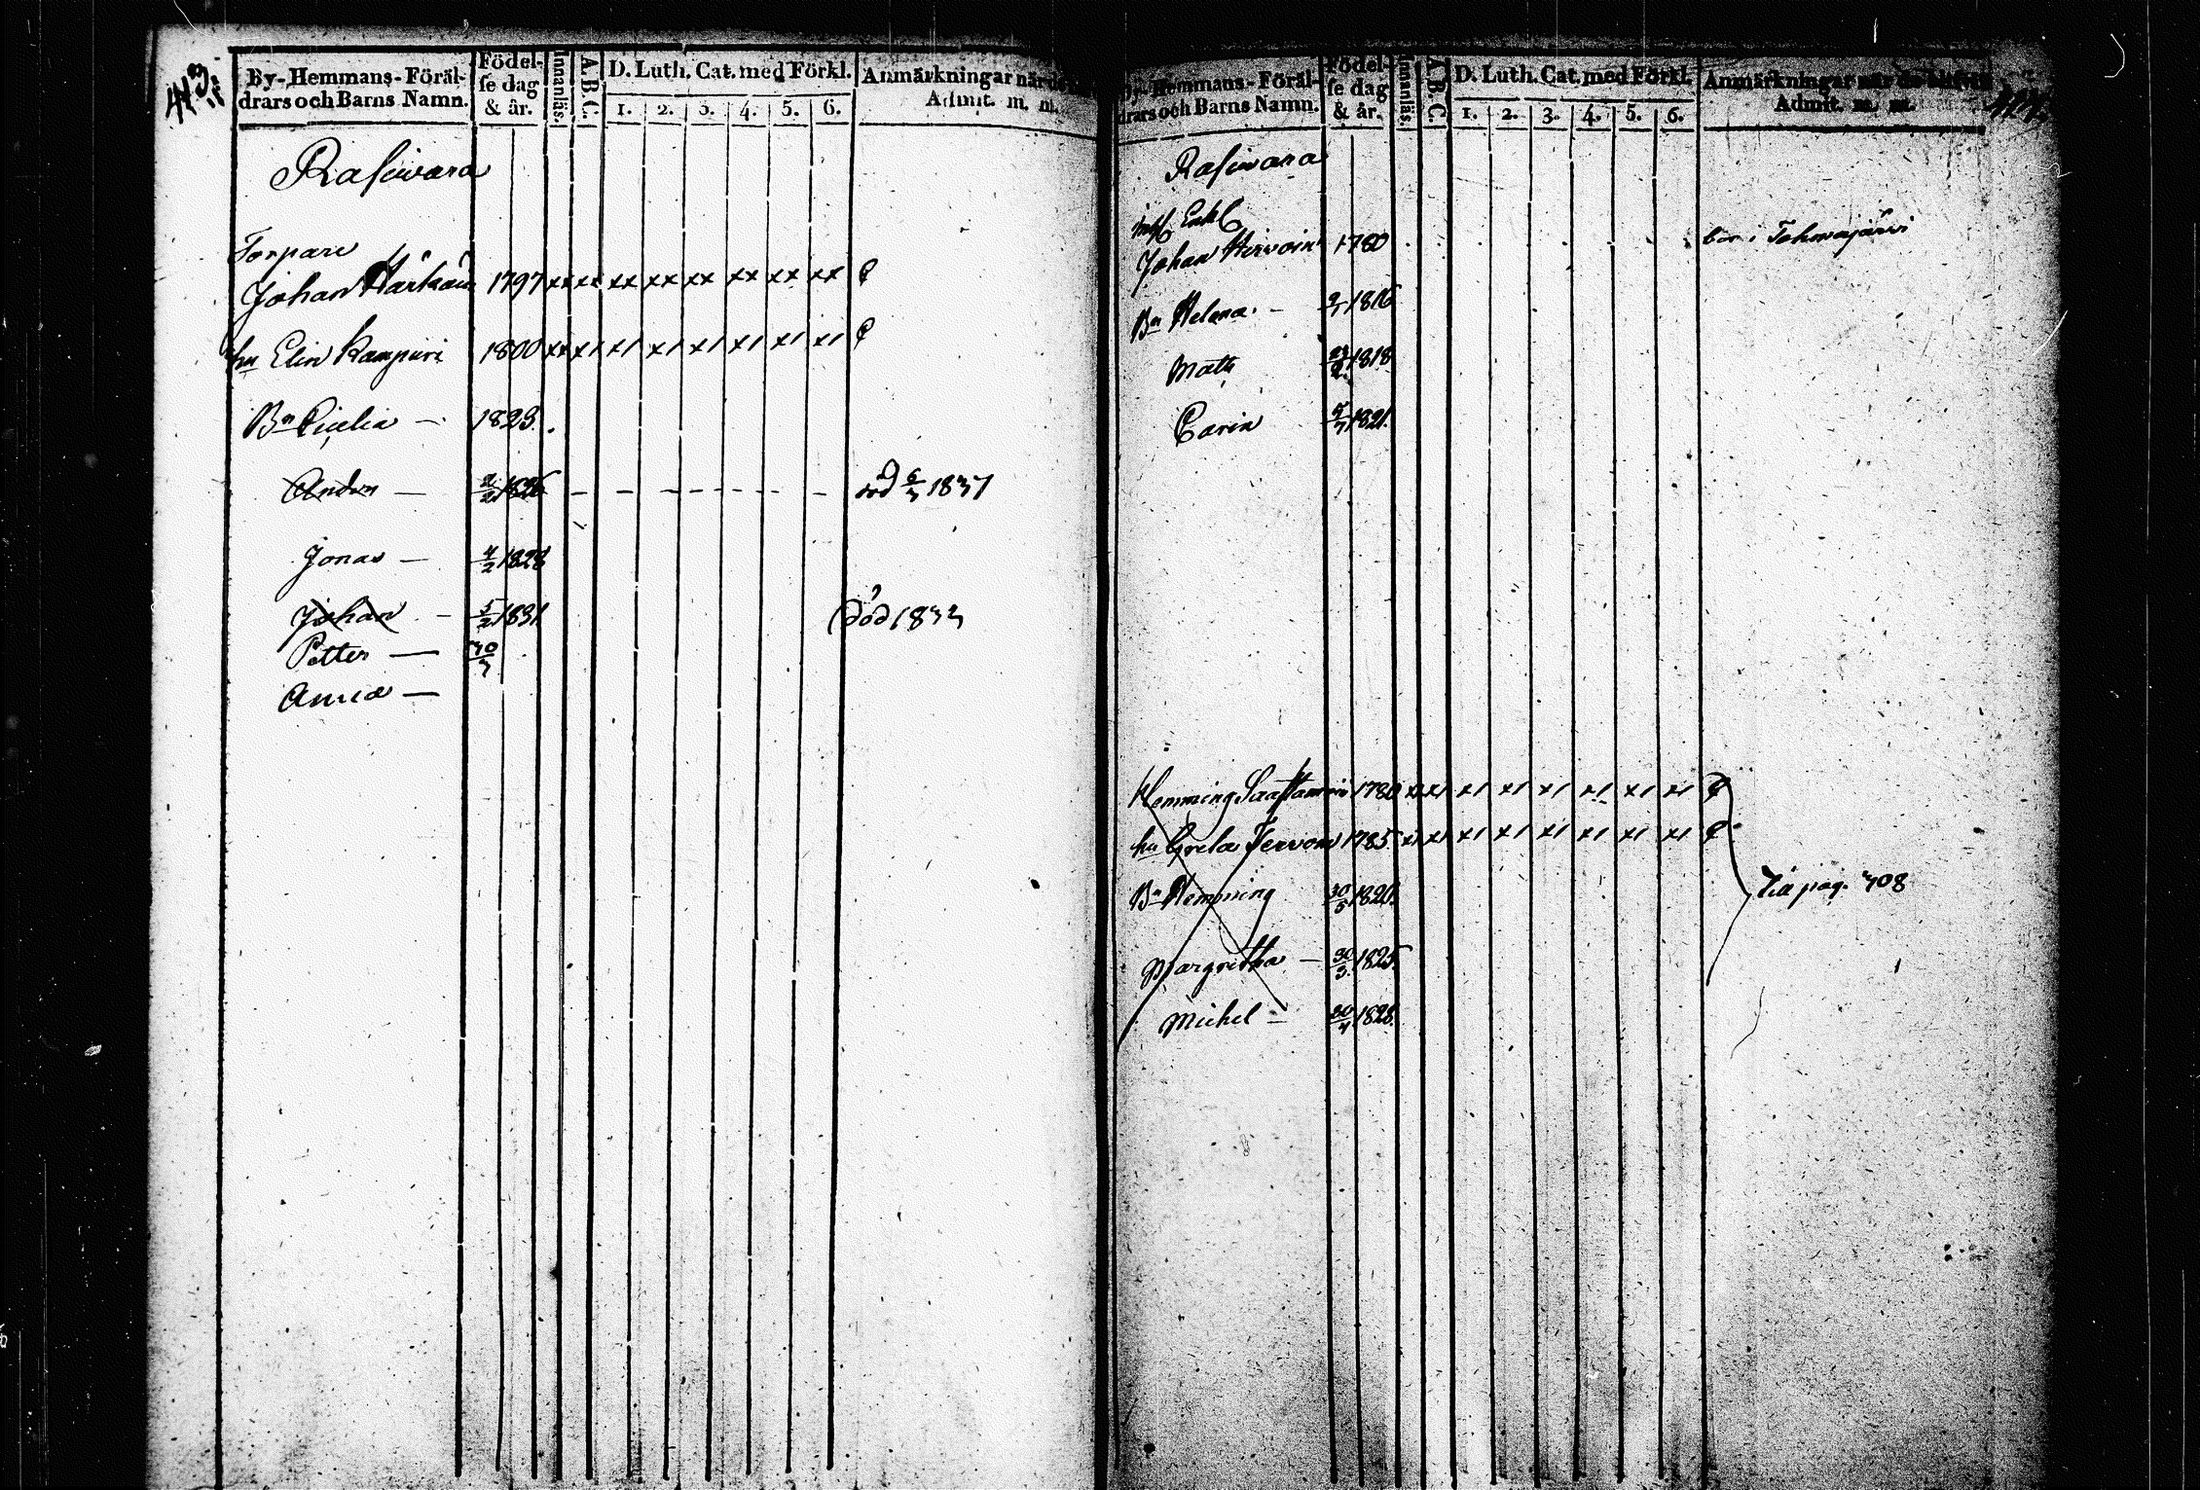 443.
By-Hemmans-Föräl-
drars och Barns Namn.
Födel-
se dag
& år.
Innanläs.
A.B.C.
D. Luth. Cat. med Förkl.
1. 2. 3. 4. 5. 6.
Anmärkningar när de
Admit. m. m.
Rasiwara
Torpare
Johan 1797 xx xx xx xx xx xx xx xx
hu Elin 1800 xx x1 x1 x1 x1 x1 x1 x1
Bn Cicilia — 1823.
Anders — 2/2 1826 död 6/3 1831
Jonas — 4/2 1828
Johan — 5/2 1831 död 1833
Petter — 30/3
Anna —
By-Hemmans-Föräl-
drars och Barns Namn.
Födel-
se dag
& år.
Innanläs.
A.B.C.
D. Luth. Cat. med Förkl.
1. 2. 3. 4. 5. 6.
Anmärkningar när de
Admit. m. m.
Rasiwara
Johan Hirvoin 1780 bor i Tohmajärvi
Bn Helena. — 1816
Math 1818
Carin 5/7 1821.
Hemming Saastamoin 1780 x1 x1 x1 x1 x1 x1 x1 x1
hu Grela Jervon 1785. x1 x1 x1 x1 x1 x1 x1 x1
Bn Hemming 30/5 1820. Till pag. 708
Margretha — 30/3. 1825.
Michel — 30/4 1828.